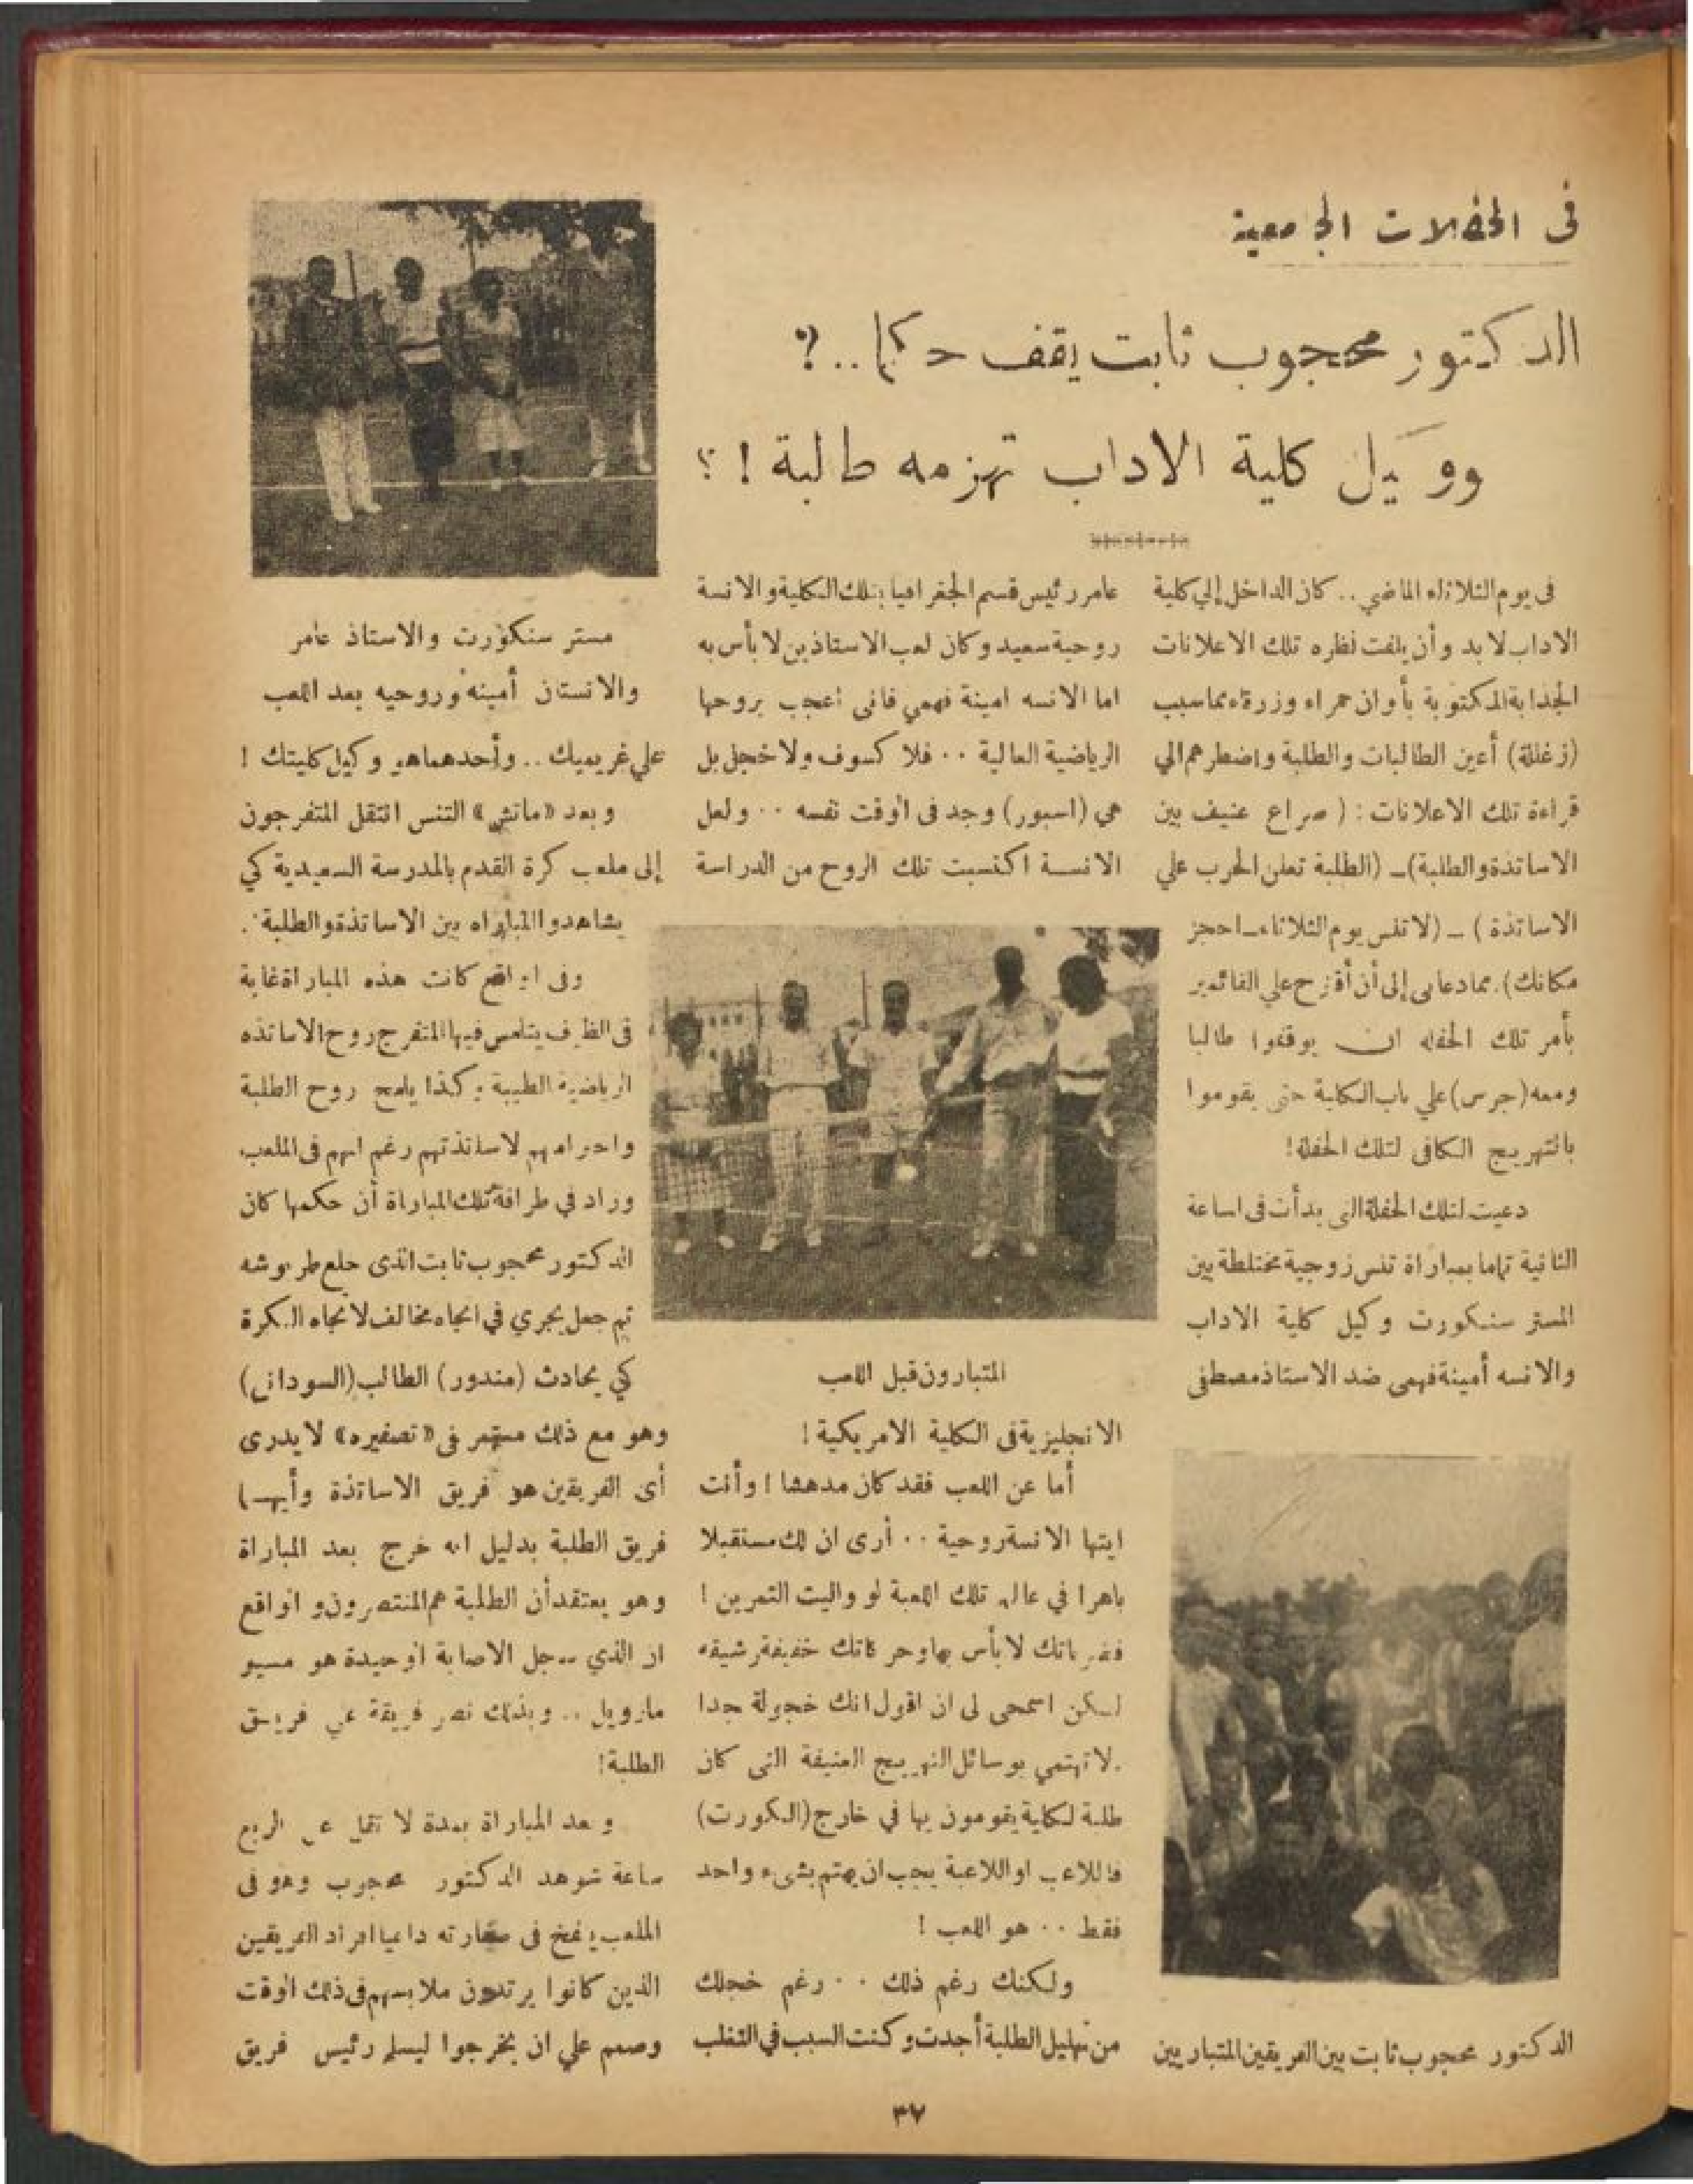 فى الحفلات الجامعية
الدكتور محجوب ثابت يقف حكما..؟
ووكيل كلية الاداب تهزمه طالبة!؟
فى يوم الثلاثاء الماضي.. كان الداخل إلي كلية
الاداب لا بد وأن يلفت نظره تلك الاعلانات
الجذابة المكتوبة بأوان حمراء وزرقاء مما سبب
(زغللة) أعين الطالبات والطلبة واضطرهم الي
قراءة تلك الاعلانات: (صراع عنيف بين
الاساتذة والطلبة)ــ (الطلبة تعلن الحرب علي
الاساتذة) ــ (لا تنس يوم الثلاثاء ــ احجز
مكانك). مما دعاني إلى أن أقترح علي القائمين
بأمر تلك الحفله ان يوقفوا طالبا
ومعه (جرس) علي باب الكلية حتى يقوموا
بالتهريج الكافى لتلك الحفلة!
دعيت لتلك الحفلة التى بدأت فى الساعة
الثانية تماما بمباراة تنس زوجية مختلطة بين
المستر سنكورت وكيل كلية الاداب
والانسه أمينة فهمى ضد الاستاذ مصطفى
الدكتور محجوب ثابت بين الفريقين المتباريين
عامر رئيس قسم الجغرافيا بتلك الكلية والانسة
روحية سعيد وكان لعب الاستاذين لا بأس به
اما الانسه امينة فهمي فانى أعجب بروحها
الرياضية العالية .. فلا كسوف ولا خجل بل
هي (اسبور) وجد فى الوقت نفسه .. ولعل
الانسة اكتسبت تلك الروح من الدراسة
المتبارون قبل اللعب
الانجليزية فى الكلية الامريكية!
أما عن اللعب فقد كان مدهشا! وأنت
ايتها الانسة روحية .. أرى ان لك مستقبلا
باهرا في عالم تلك اللعبة لو واليت التمرين!
فضرباتك لا بأس بها وحركاتك خفيفة رشيقه
لكن اسمحى لى ان اقول انك خجولة جدا
.لا تهتمي بوسائل التهريج العنيفة التى كان
طلبة الكلية يقومون بها في خارج (الكورت)
فاللاعب او اللاعبة يجب ان يهتم بشىء واحد
فقط .. هو اللعب!
ولكنك رغم ذلك .. رغم خجلك
من تهليل الطلبة أجدت وكنت السبب في التغلب
مستر سنكورت والاستاذ عامر
والانستان أمينه وروحيه بعد اللعب
علي غريميك .. وأحدهما هو وكيل كليتك!
وبعد «ماتش» التنس انتقل المتفرجون
إلى ملعب كرة القدم بالمدرسة السعيدية كي
يشاهدوا المباراه بين الاساتذة والطلبة.
وفى الواقع كانت هذه المباراة غاية
فى الظرف يتلمس فيها المتفرج روح الاساتذه
الرياضية الطيبة وكذا يلمح روح الطلبة
واحترامهم لاساتذتهم رغم انهم فى الملعب
وزاد في طرافة تلك المباراة أن حكمها كان
الدكتور محجوب ثابت الذى خلع طربوشه
ثم جعل يجري في اتجاه مخالف لاتجاه الكرة
كي يحادث (مندور) الطالب (السودانى)
وهو مع ذلك مستمر فى «تصفيره» لا يدرى
أى الفريقين هو فريق الاساتذة وأيهما
فريق الطلبة بدليل انه خرج بعد المباراة
وهو يعتقد أن الطلبة هم المنتصرون والواقع
ان الذي سجل الاصابة الوحيدة هو مسيو
مازويل .. وبذلك نصر فريقة على فريق
الطلبة!
وبعد المباراة بمدة لا تقل عن الربع
ساعة شوهد الدكتور محجوب وهو فى
الملعب ينفخ فى صفارته داعيا افراد الفريقين
الذين كانوا يرتدون ملابسهم فى ذلك الوقت
وصمم علي ان يخرجوا ليسلم رئيس فريق
٣٧